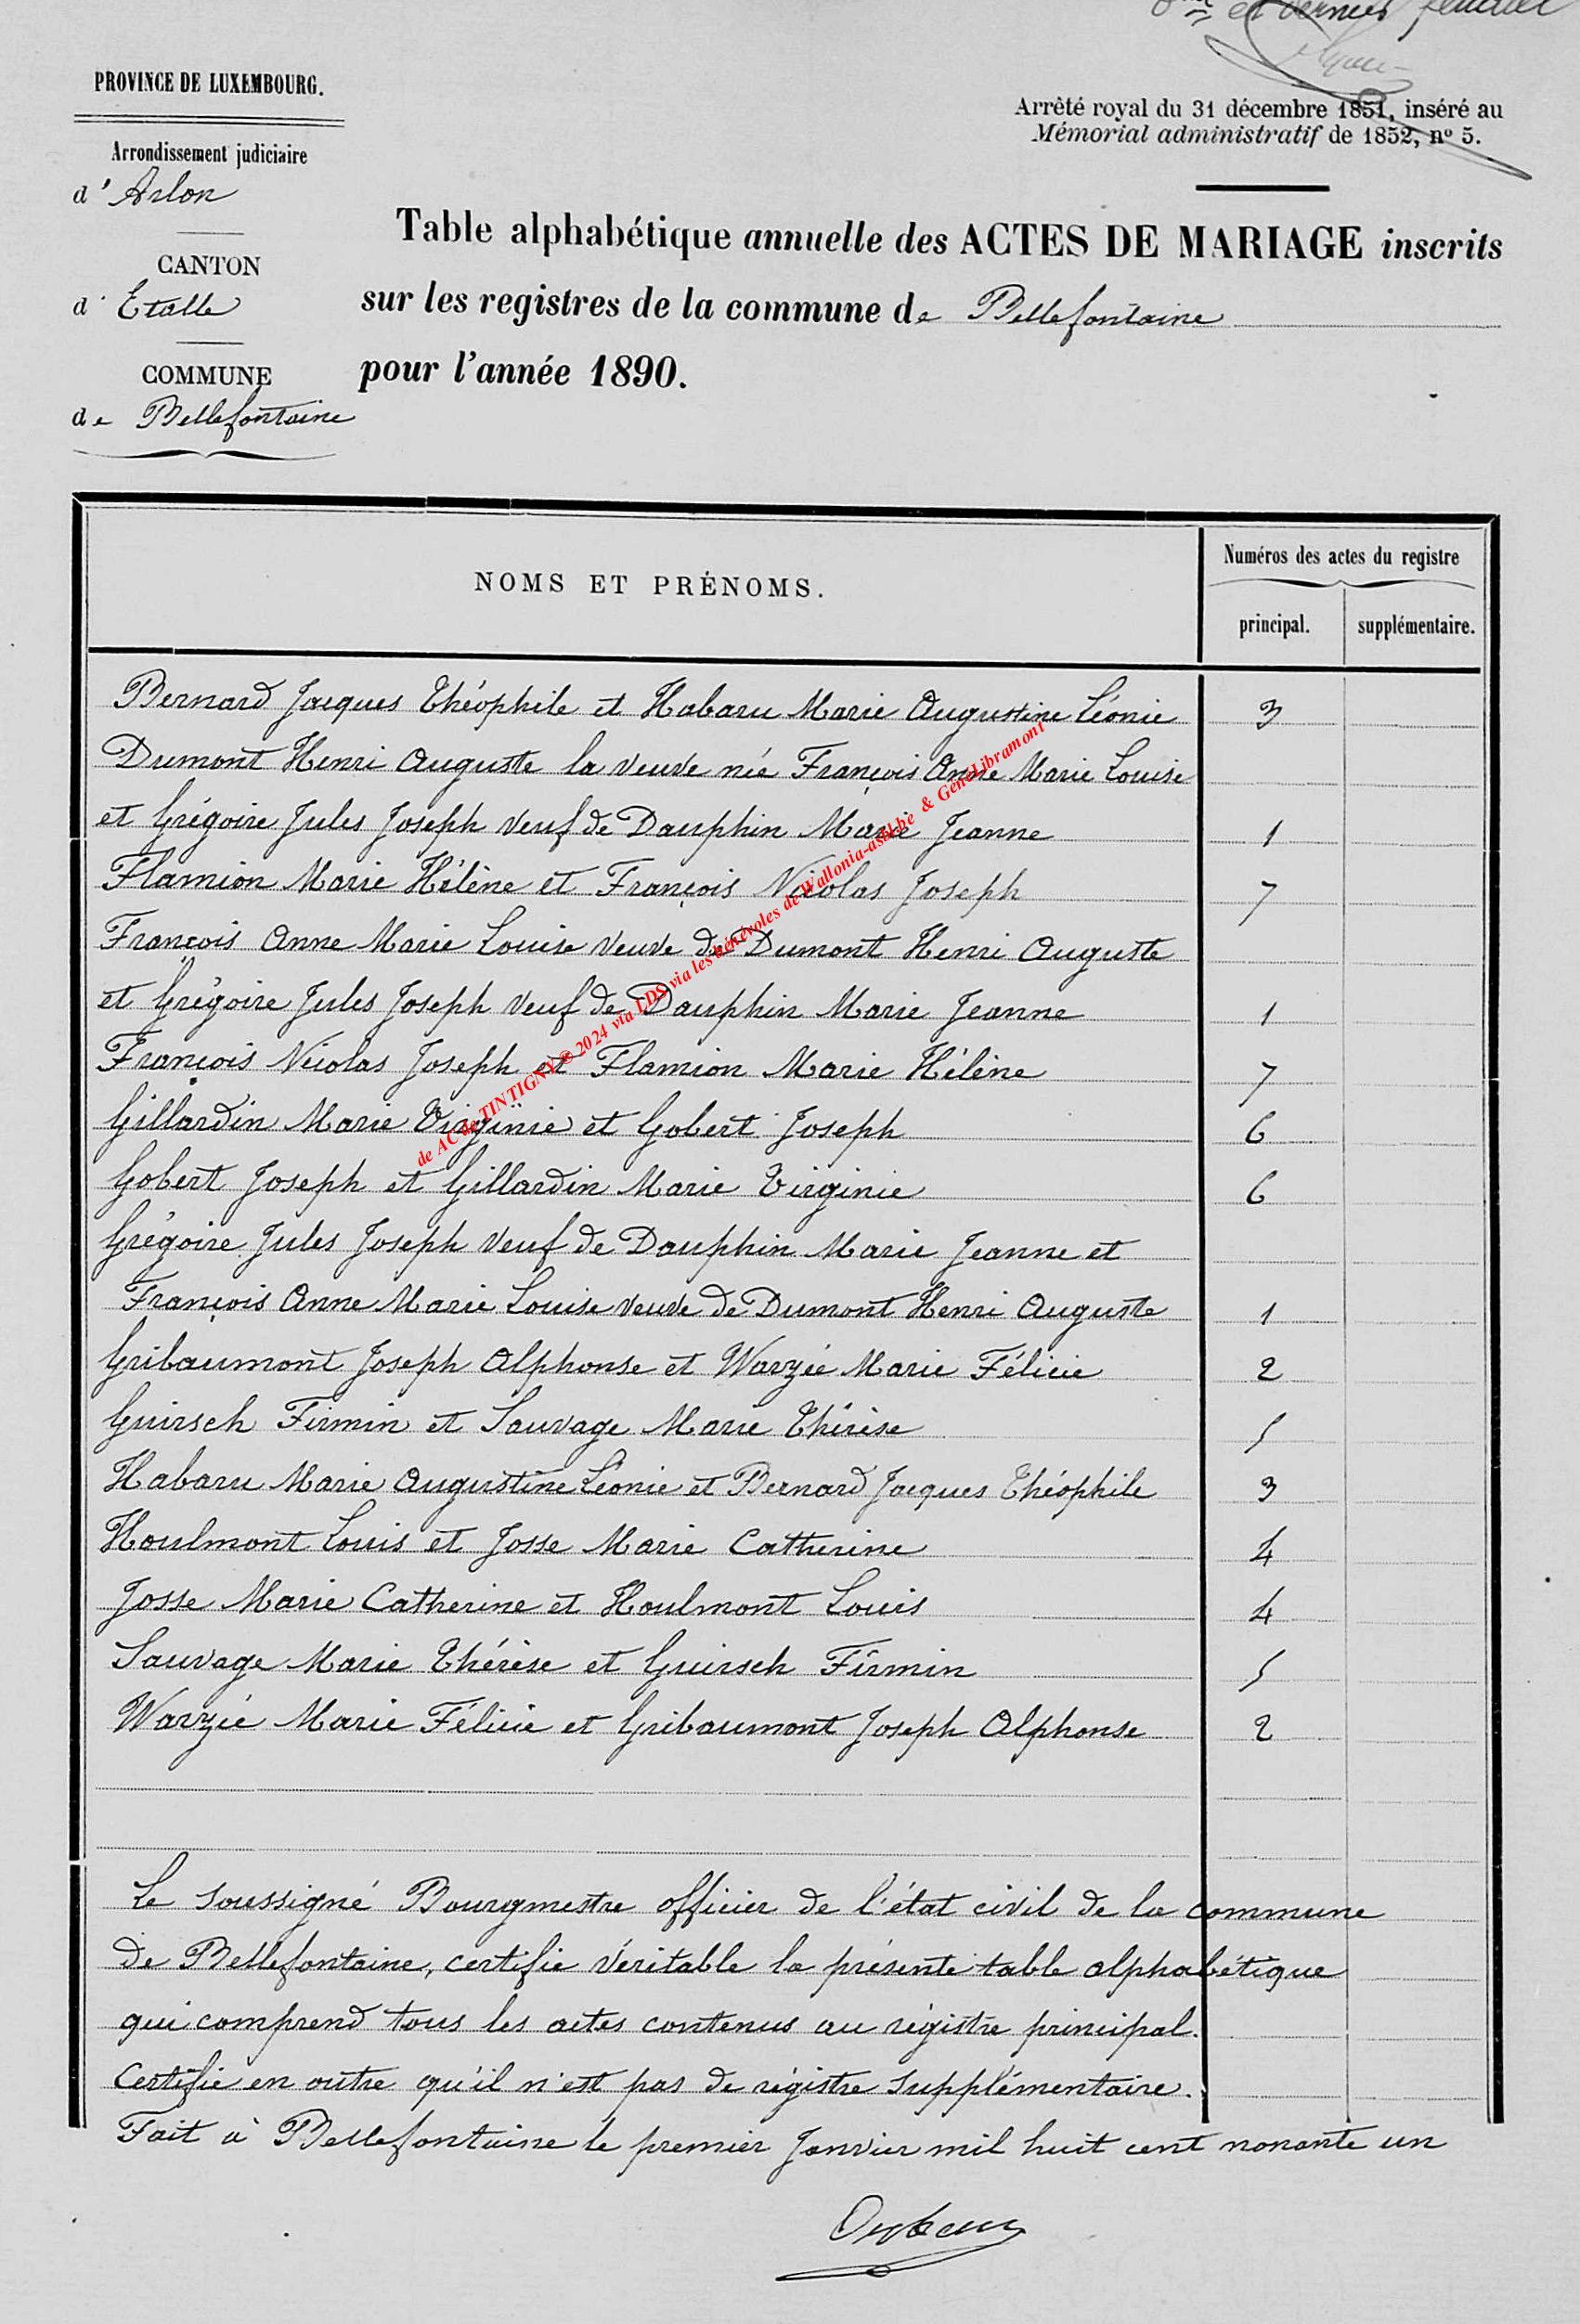 et dernier feuillet
PROVINCE DE LUXEMBOURG.
Arrêté royal du 31 décembre 1851, inséré au
Mémorial administratif de 1852, nº 5.
Arrondissement judiciaire
d'Arlon
CANTON
d'Etalle
COMMUNE
de Bellefontaine
Table alphabétique annuelle des ACTES DE MARIAGE inscrits
sur les registres de la commune de Bellefontaine
pour l'année 1890.
NOMS ET PRÉNOMS.
Numéros des actes du registre
principal. supplémentaire.
Bernard Jacques Théophile et Habaru Marie Augustine Léonie 3
Dumont Henri Auguste la veuve née François Anne Marie Louise
et Grégoire Jules Joseph veuf de Dauphin Marie Jeanne 1
Flamion Marie Hélène et François Nicolas Joseph 7
François Anne Marie Louise veuve de Dumont Henri Auguste
et Grégoire Jules Joseph veuf de Dauphin Marie Jeanne 1
François Nicolas Joseph et Flamion Marie Hélène 7
Gillardin Marie Virginie et Gobert Joseph 6
Gobert Joseph et Gillardin Marie Virginie 6
Grégoire Jules Joseph veuf de Dauphin Marie Jeanne et
François Anne Marie Louise veuve de Dumont Henri Auguste 1
Gribaumont Joseph Alphonse et Warzée Marie Félicie 2
Guirsch Firmin et Sauvage Marie Thérèse 5
Habaru Marie Augustine Léonie et Bernard Jacques Théophile 3
Houlmont Louis et Josse Marie Catherine 4
Josse Marie Catherine et Houlmont Louis 4
Sauvage Marie Thérèse et Guirsch Firmin 5
Warzée Marie Félicie et Gribaumont Joseph Alphonse 2
Le soussigné Bourgmestre officier de l'état civil de la commune
de Bellefontaine, certifie véritable la présente table alphabétique
qui comprend tous les actes contenus au régistre principal.
Certifie en outre qu'il n'est pas de régistre supplémentaire.
Fait à Bellefontaine le premier Janvier mil huit cent nonante un
de AC de TINTIGNY ® 2024 via LDS via les bénévoles de Wallonia-asbl-be & GénéLibramont